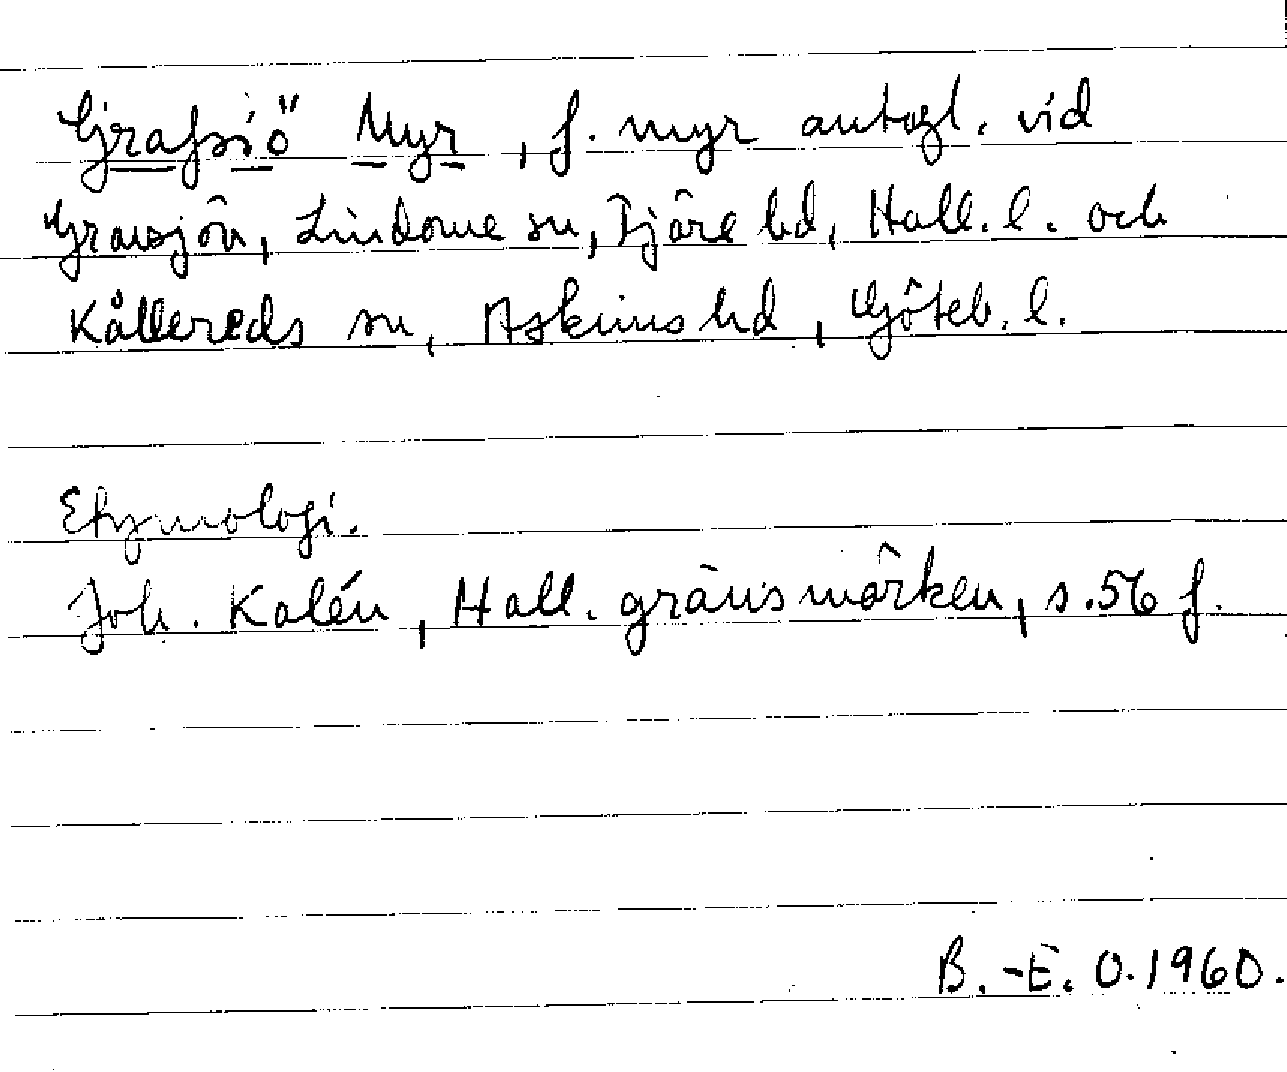 Grafsiö Myr, f. myr antagl. vid
Gravsjön, Lindome sn, Fjäre hd, Hall. l. och
Kållereds sn, Askims hd, Göteb. l.
Etymologi.
Joh. Kalén, Hall. gränsmärken, s. 56 f.
B.-E. O. 1960.